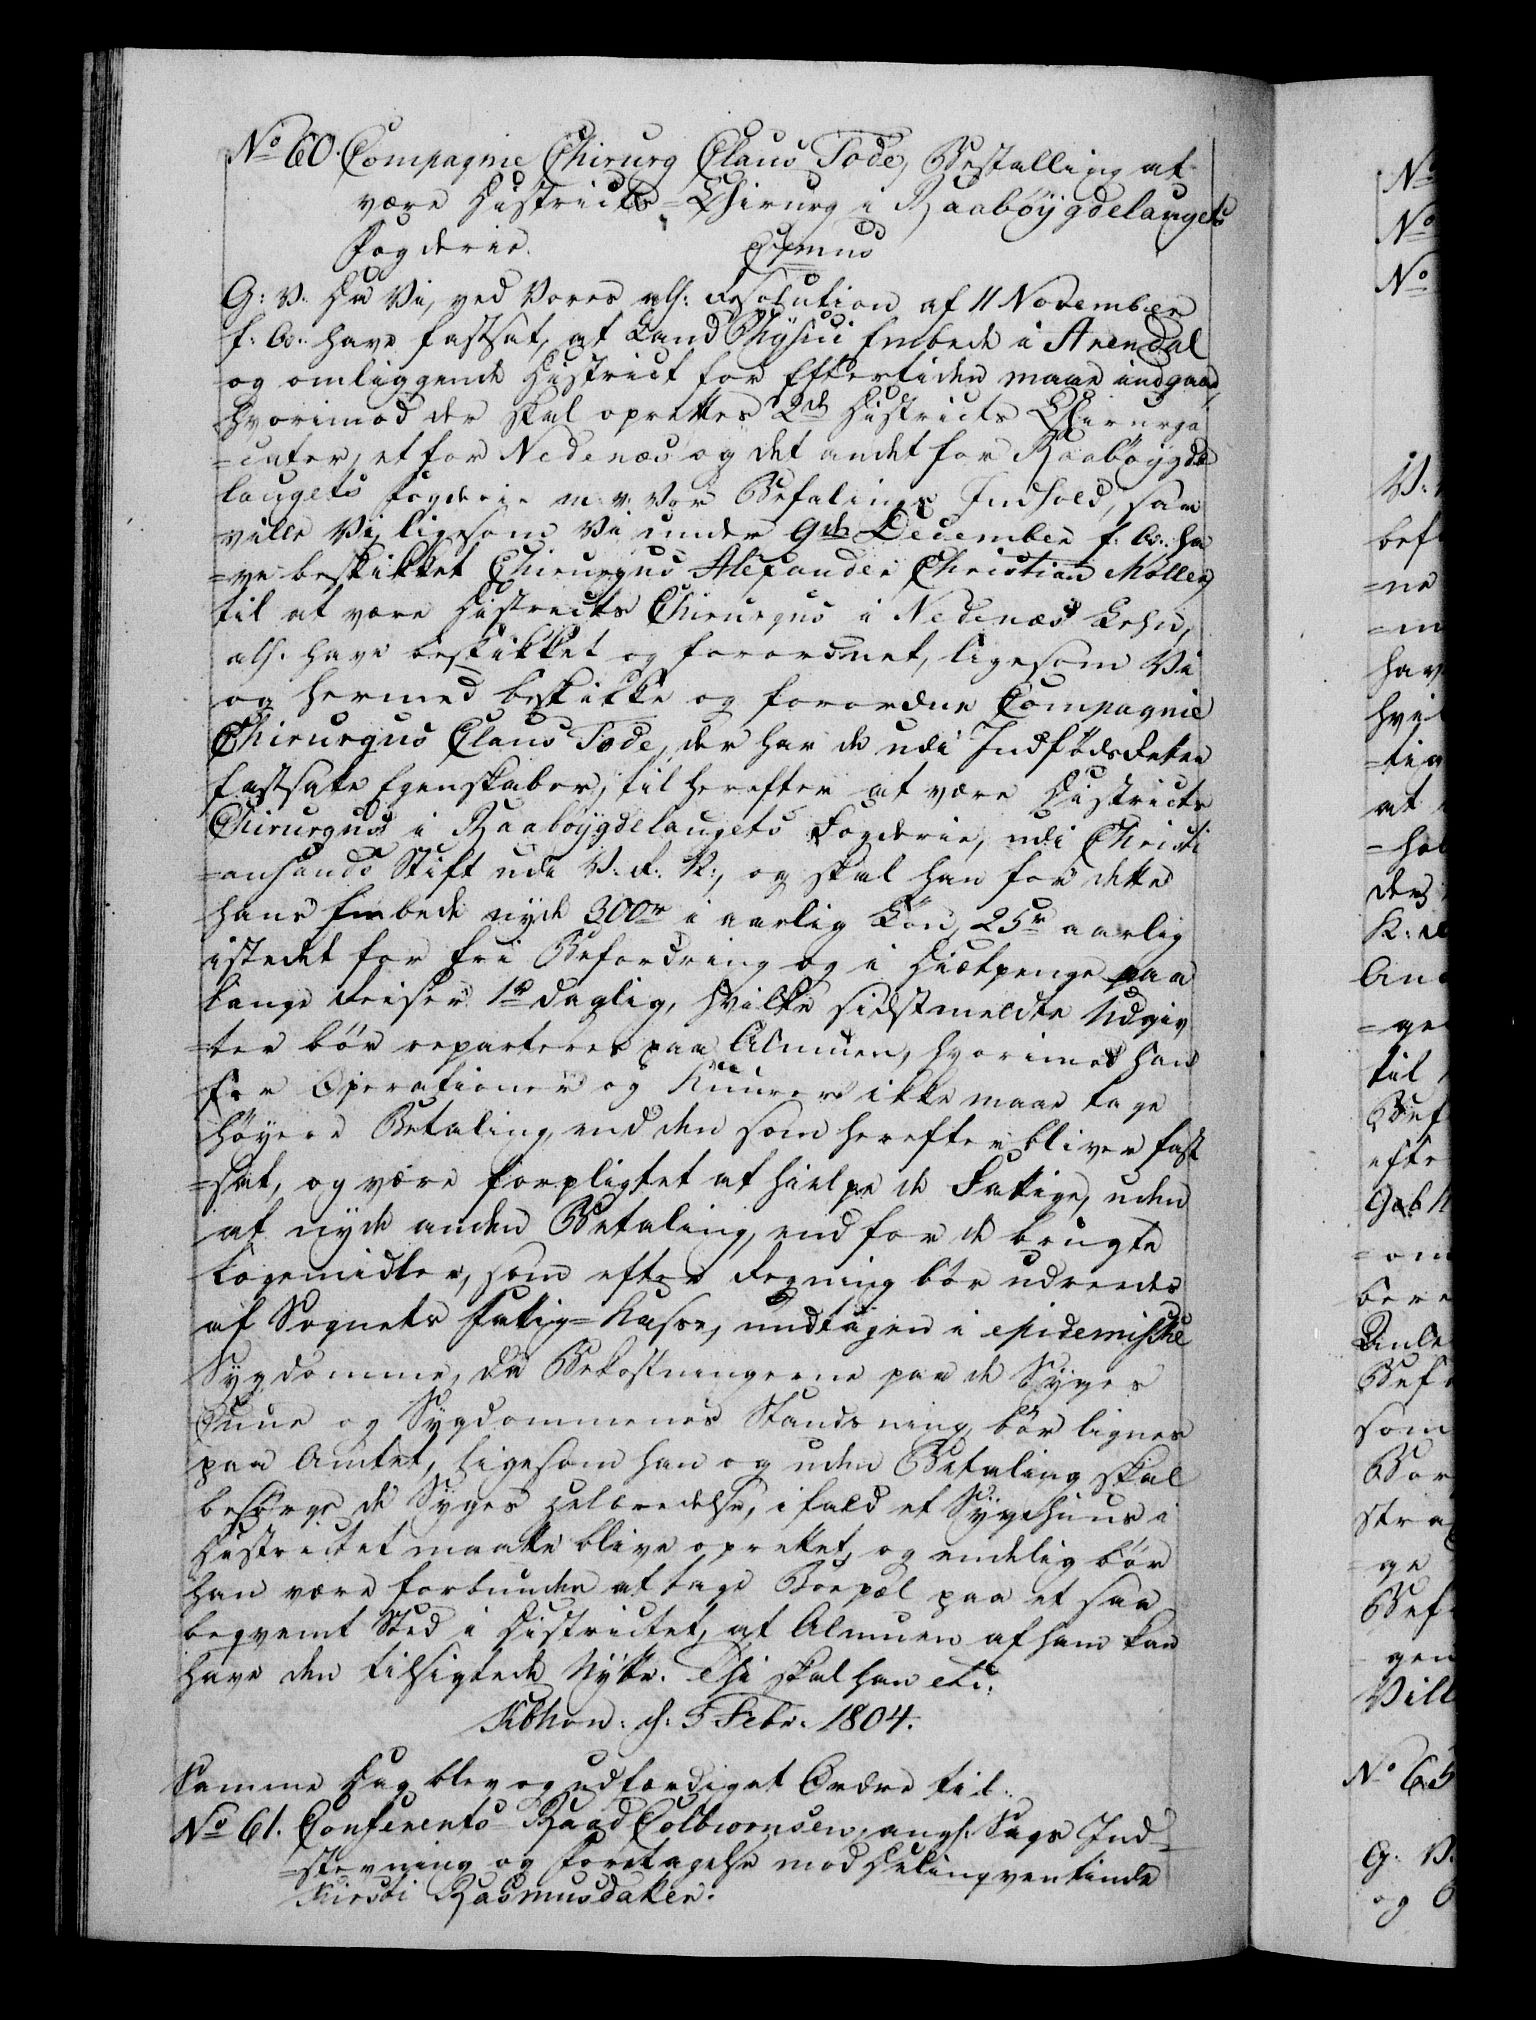 No 60. Compagnie Chirurg Claus Tode, Bestalling at
være Districts-Chirurg i Raabøygdelaugets
Fogderie. Osmus
G: V: Da Vi, ved Vores alh: Resolution af 11 November
f: A: have fastsat, at Land Physici Embede i Arendal
og omliggende District for Eftertiden maae indgaae,
hvorimod der skal oprettes 2de Districts Chirurga
=cater, et for Nedenæs og det andet for Raabøygde
laugets Fogderie m: v: Vor Befalings Indhold, saa
ville Vi, ligesom Vi under 9de December f: A: ha
=ve beskikket Chirurgus Alexander Christian Møller
til at være Districts Chirurgus i Nedenæs Lehn,
alh: have beskikket og forordnet, ligesom Vi
og hermed beskikke og forordne Compagnie
Chirurgus Claus Tode, der har de udi Indføds Retten
fastsatte Egenskaber, til herefter at være Districts
Chirurgus i Raabøygdelaugets Fogderie, udi Christi
=ansands Stift udi V: R: N:, og skal han for dette
hans Embede nyde 300 r i aarlig Løn, 25 r aarlig
istedet for fri Befordring og i Diætpenge paa
lange Reiser 1 r daglig, hvilke sidstmeldte Udgiv
=ter bør reparteres paa Almuen, hvorimod han
for Operationer og Kuurer ikke maae tage
høyere Betaling, end den som herefter bliver fast
=sat, og være forpligtet at hielpe de Fattige, uden
at nyde anden Betaling, end for de brugte
Lægemidler, som efter Regning bør udredes
af Sognets Fattig=Kasse, undtagen i epidemiske
Sygdomme, da Bekostningerne paa de Syges
Cuur og Sygdommenes Standsning bør lignes
paa Amtet, ligesom han og uden Betaling skal
besørge de Syges Helbredelse, ifald et Sygehuus i
Districtet maatte blive oprettet, og endelig bør
han være forbunden at tage Boepæl paa et saa
beqvemt Sted i Districtet, at Almuen af ham kan
have den tilsigtede Nytte. Thi skal han etc:
Kbhvn: d: 3 Febr: 1804.
Samme Dag blev og udfærdiget Ordre til:
No 61. Conferents-Raad Colbiørnsen, angl: Sags Ind=
=stevning og Foretagelse mod Delinqventinde
Kirsti Rasmusdatter.